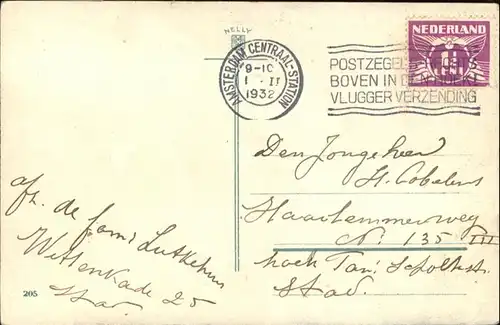 NELLY
AMSTERDAM CENTRAAL-STATION
9-10
1 · II
1932
POSTZEGEL RECHTS
BOVEN IN DEN HOEK!
VLUGGER VERZENDING
NEDERLAND
1½
Den Jongeheer
H. Cobelens
Haarlemmerweg
No. 135 III
hoek Van
Stad.
afz. de fam:
Wittenkade 25
Stad.
205